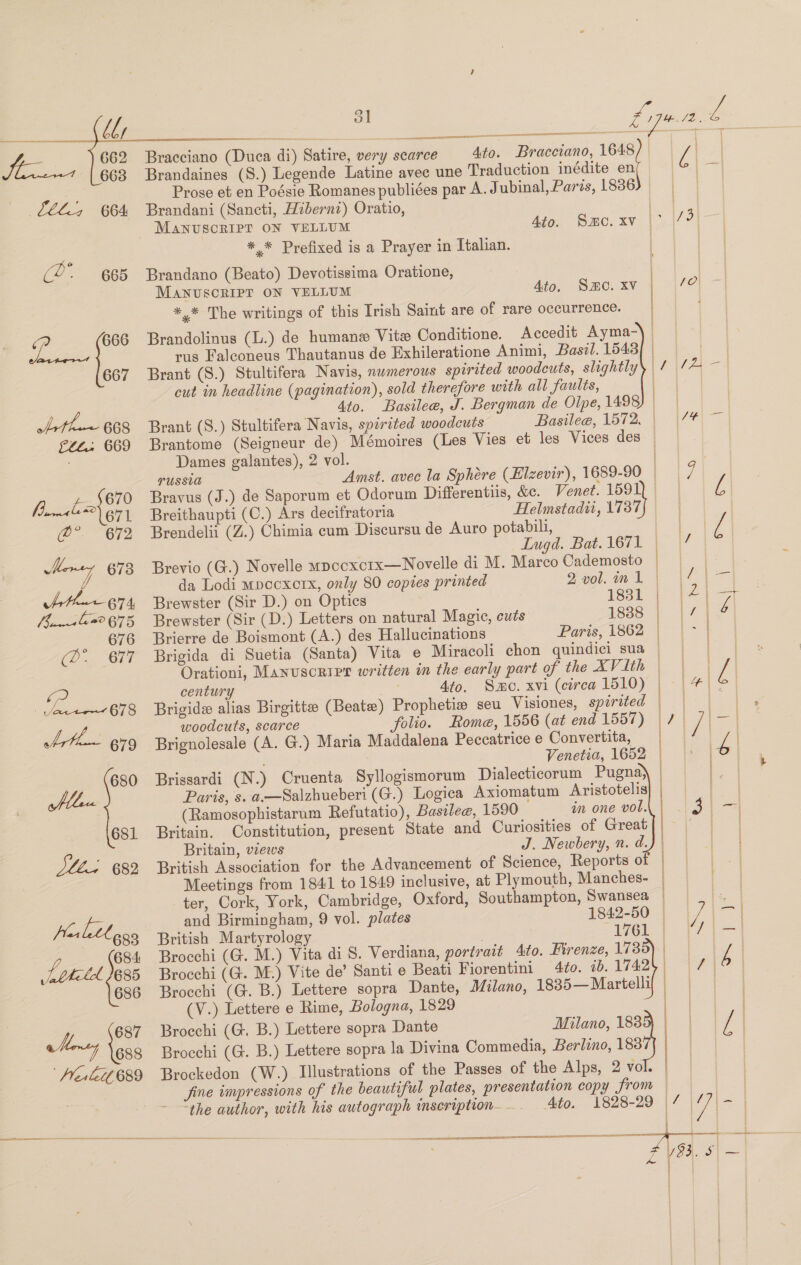 31 £ 174.12.6
662 Bracciano (Duca di) Satire, very scarce 4to. Bracciano, 1648)
663 Brandaines (S.) Legende Latine avec une Traduction inédite en
Prose et en Poésie Romanes publiées par A. Jubinal, Paris, 1836) 6 —
Ellis 664 Brandani (Sancti, Hiberni) Oratio,
MANUSCRIPT ON VELLUM 4to. SÆC. XV 13 —
*** Prefixed is a Prayer in Italian.
Do. 665 Brandano (Beato) Devotissima Oratione,
MANUSCRIPT ON VELLUM 4to. SÆC. XV 10 —
*** The writings of this Irish Saint are of rare occurrence.
666 Brandolinus (L.) de humanæ Vitæ Conditione. Accedit Ayma-
rus Falconeus Thautanus de Exhileratione Animi, Basil. 1543
667 Brant (S.) Stultifera Navis, numerous spirited woodcuts, slightly 1 12 —
cut in headline (pagination), sold therefore with all faults,
4to. Basileæ, J. Bergman de Olpe, 1498)
Arthur 668 Brant (S.) Stultifera Navis, spirited woodcuts Basileæ, 1572. 14 —
Ellis 669 Brantome (Seigneur de) Mémoires (Les Vies et les Vices des
Dames galantes), 2 vol.
russia Amst. avec la Sphère (Elzevir), 1689-90 9
670 Bravus (J.) de Saporum et Odorum Differentiis, &c. Venet. 1591)
671 Breithaupti (C.) Ars decifratoria Helmstadii, 1737) 6
Do 672 Brendelii (Z.) Chimia cum Discursu de Auro potabili,
Lugd. Bat. 1671 1 6
Money 673 Brevio (G.) Novelle MDCCXCIX—Novelle di M. Marco Cademosto
da Lodi MDCCXCIX, only 80 copies printed 2 vol. in 1 1 —
Arthur 674 Brewster (Sir D.) on Optics 1831 2 —
675 Brewster (Sir (D.) Letters on natural Magic, cuts 1838 1 6
676 Brierre de Boismont (A.) des Hallucinations Paris, 1862
Do. 677 Brigida di Suetia (Santa) Vita e Miracoli chon quindici sua
Orationi, MANUSCRIPT written in the early part of the XVIth
century 4to. SÆC. xvi (circa 1510) 4 6
678 Brigidæ alias Birgittæ (Beatæ) Prophetiæ seu Visiones, spirited
woodcuts, scarce folio. Romæ, 1556 (at end 1557) 1 1 —
Arthur 679 Brignolesale (A. G.) Maria Maddalena Peccatrice e Convertita,
Venetia, 1652 6
680 Brissardi (N.) Cruenta Syllogismorum Dialecticorum Pugna,
Paris, s. a.—Salzhueberi (G.) Logica Axiomatum Aristotelis
(Ramosophistarum Refutatio), Basileæ, 1590 in one vol.
Allen 3 —
681 Britain. Constitution, present State and Curiosities of Great
Britain, views J. Newbery, n. d.)
Ellis 682 British Association for the Advancement of Science, Reports of
Meetings from 1841 to 1849 inclusive, at Plymouth, Manches-
ter, Cork, York, Cambridge, Oxford, Southampton, Swansea
and Birmingham, 9 vol. plates 1842-50 7 —
683 British Martyrology 1761 1 —
684 Brocchi (G. M.) Vita di S. Verdiana, portrait 4to. Firenze, 1735)
685 Brocchi (G. M.) Vite de' Santi e Beati Fiorentini 4to. ib. 1742 1 6
686 Brocchi (G. B.) Lettere sopra Dante, Milano, 1835—Martelli
(V.) Lettere e Rime, Bologna, 1829
687 Brocchi (G. B.) Lettere sopra Dante Milano, 1835)
Money 688 Brocchi (G. B.) Lettere sopra la Divina Commedia, Berlino, 1837) 6
689 Brockedon (W.) Illustrations of the Passes of the Alps, 2 vol.
fine impressions of the beautiful plates, presentation copy from
the author, with his autograph inscription 4to. 1828-29 1 17 —
£ 183. 5 —